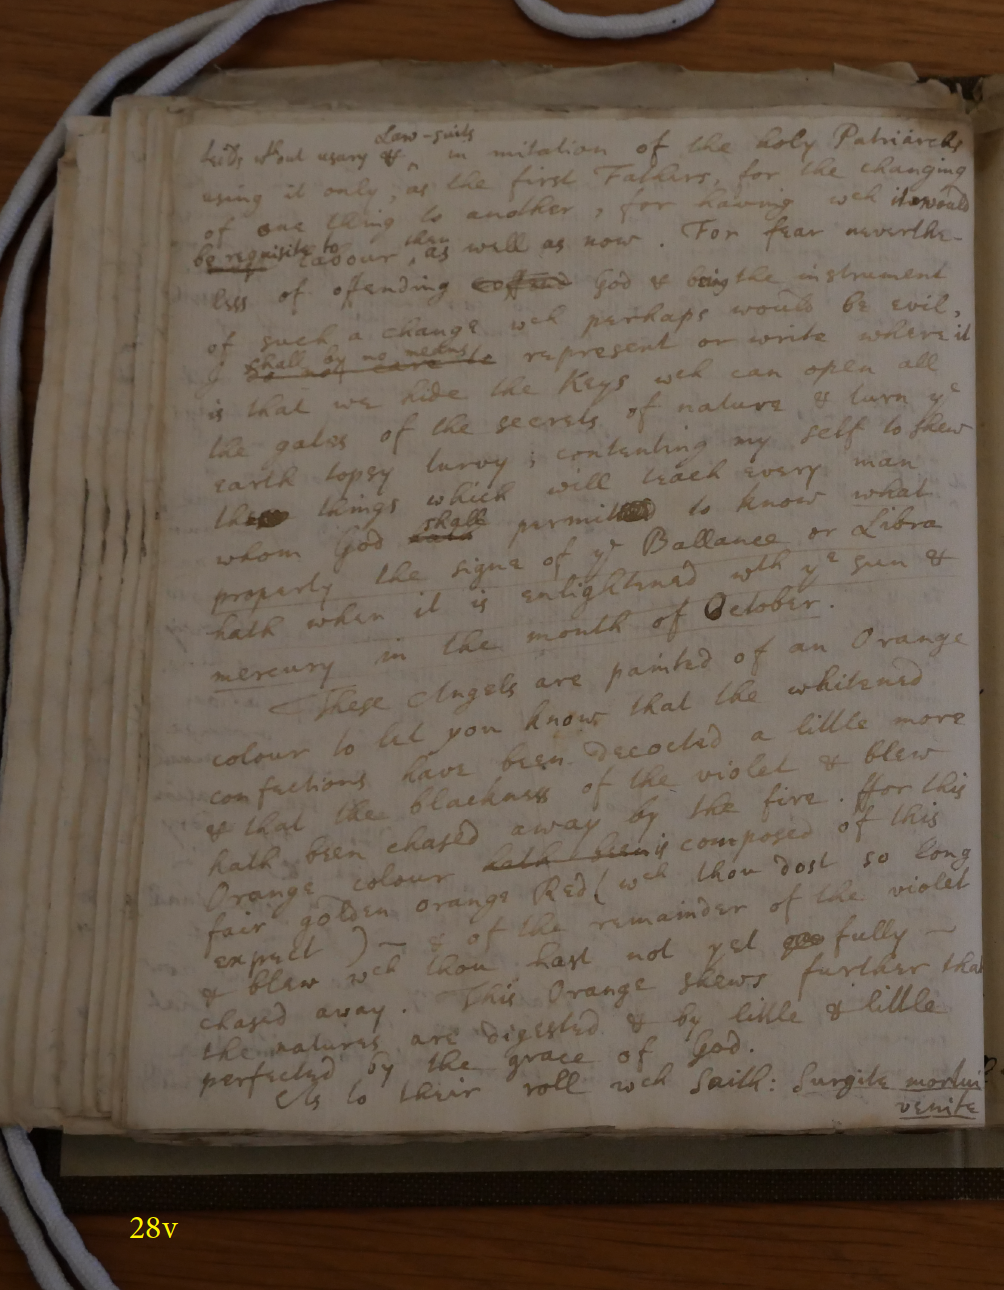 Law-suits
without usary & in mitation of the holy Patriarchs
using it only, as the first Fathers, for the changing
of one thing to another, for having wch it would
be requisite to labour, then as well as now. For fear neverthe-
less of offending God & being the instrument
of such a change wch perhaps would be evil,
I shall by no means represent or write where it
is that we hide the Keys wch can open all
the gates of the secrets of nature & turn ye
earth topsy turvy; contenting my self to shew
things which will teach every man
whom God hath shall permit to know what
property the signe of ye Ballance or Libra
hath when it is enlightened wth ye sun &
mercury in the month of October.
These Angels are painted of an Orange
colour to let you know that the whitened
confections have been decocted a little more
& that the blackness of the violet & blew
hath been chased away by the fire. Ffor this
Orange colour hath been is composed of this
fair golden orange Red (wch thou dost so long
expect) ~ & of the remainder of the violet
& blew wch thou hast not yet fully ~
chased away. This Orange shews further that
the natures are digested & by little & little
perfected by the grace of God.
As to their roll wch saith: Surgite mortui
venite
28v